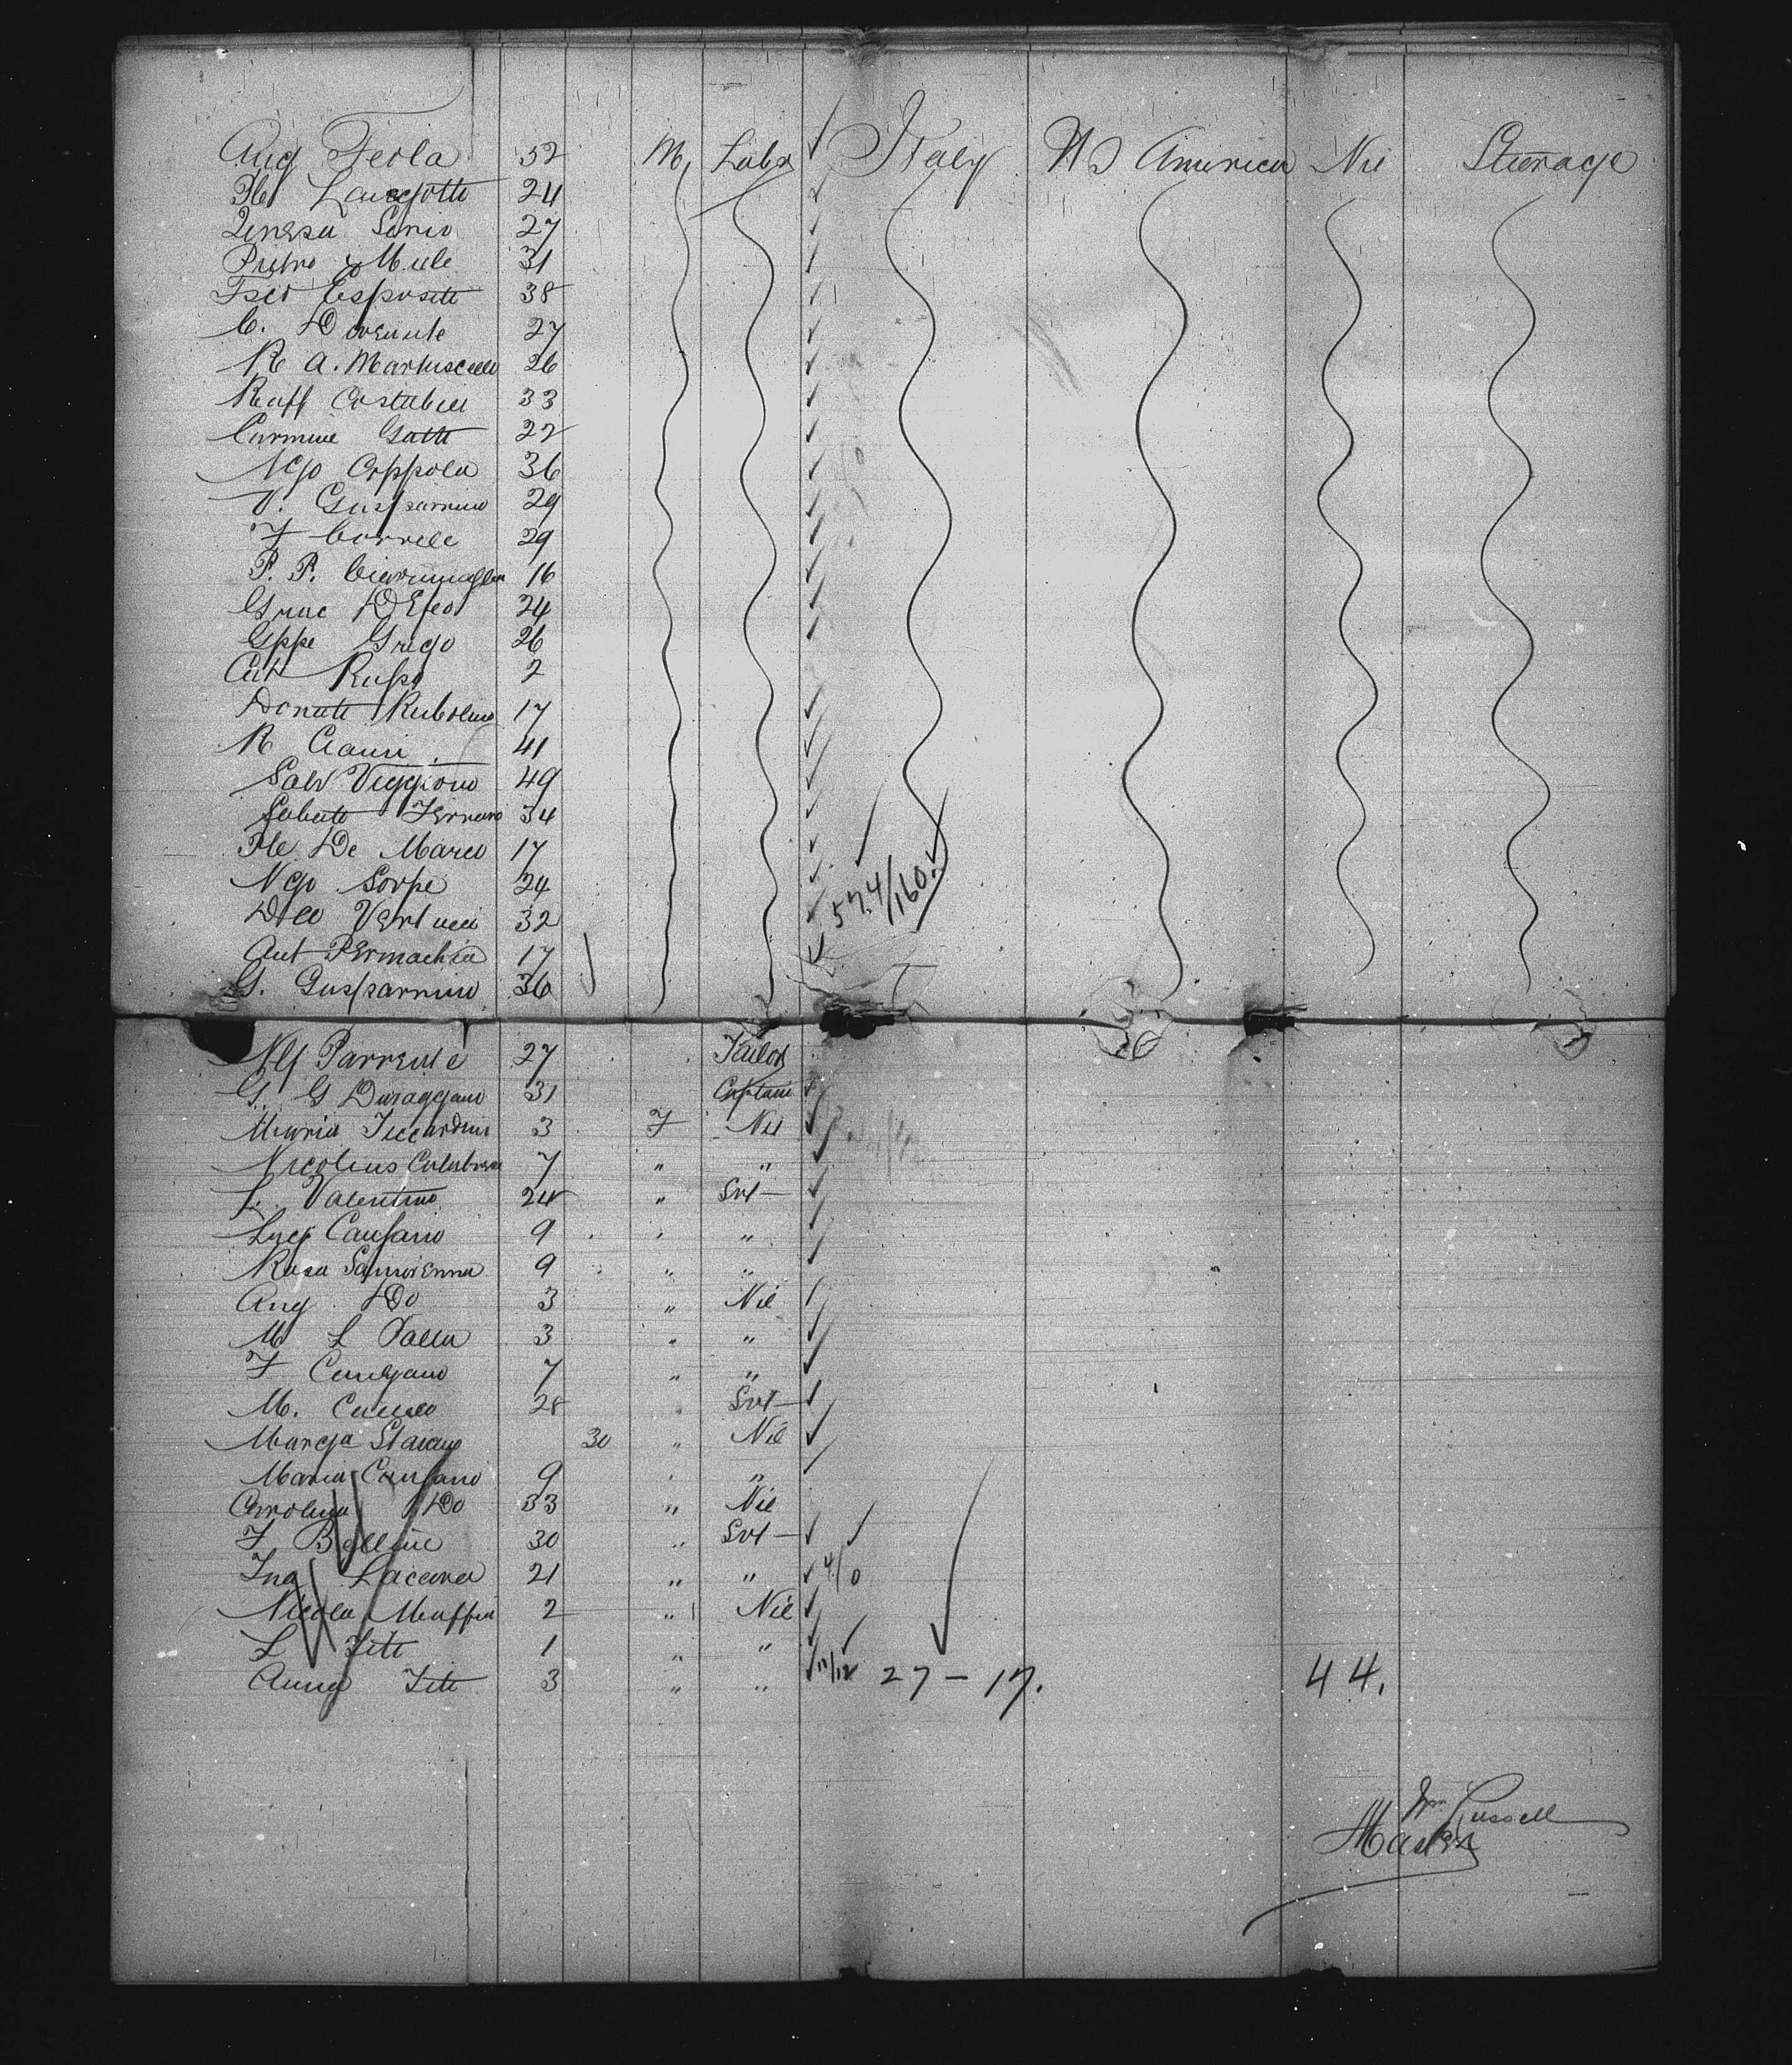 Ang Feola 52 M Labr Italy US America Nil Steerage
Fle Langotti 24
Teresa Serio 27
Pietro Miele 31
Fsco Esposito 38
C. Dovente 27
R A. Martuscelli 26
Raff Costabile 33
Carmine Gatti 22
Ngo Coppola 36
V. Gasparrino 29
F Correle 29
P. P. 16
Grac DEfeo 24
Gppe Grego 26
Cat Russo 2
Donato Rubolino 17
R Ciauri 41
Salv Viggiono 49
Sabato Ferraro 34
Fle De Marco 17
Ngo Sorpe 24
Dco Vertucci 32 574/160.
Ant Permachia 17
G. Gasparrino 36
Parrente 27 Tailor
G. G Duraggano 31 Captain
Maria Ticcardini 3 F Nil
Nicolius Calabrese 7 " "
L. Valentino 24 " Svt
Lucy Caufano 9 " "
Rosa Samorenna 9 " "
Ang Do 3 " Nil
M L Salla 3 " "
F Cangano 7 " "
M. Cuneo 28 " Svt
Marga Staiano 30 " Nil
Maria Caufano 9 " "
Carolina Do 33 " Nil
F Bellini 30 " Svt
Ina Lacava 21 " " 4/0
Nicola Maffia 2 " Nil
L Teti 1 " "
Anna Teti 3 " " 11/12 27 - 17. 44.
Wm Russell
Master